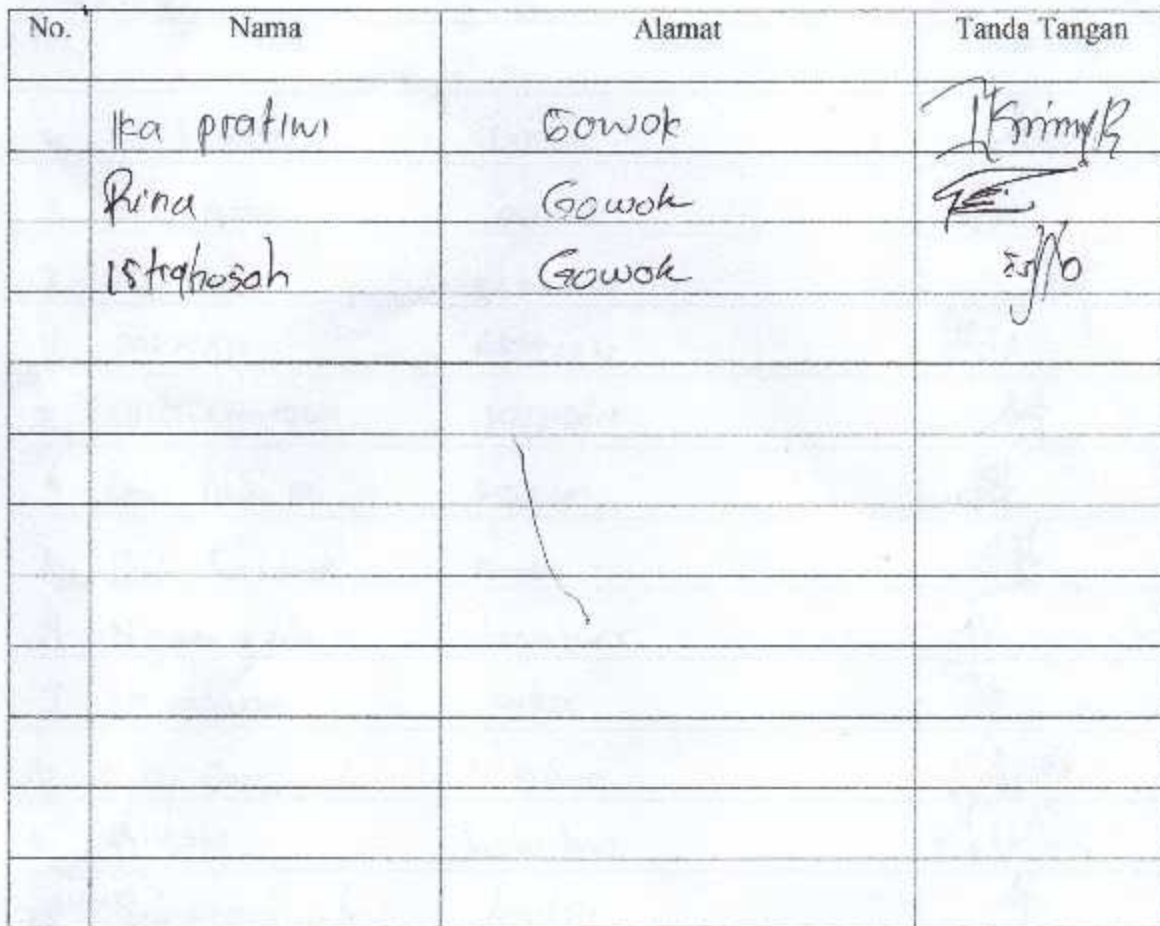 No. Nama Alamat Tanda Tangan
Ika pratiwi Gowok
Rina Gowok
Istighosah Gowok